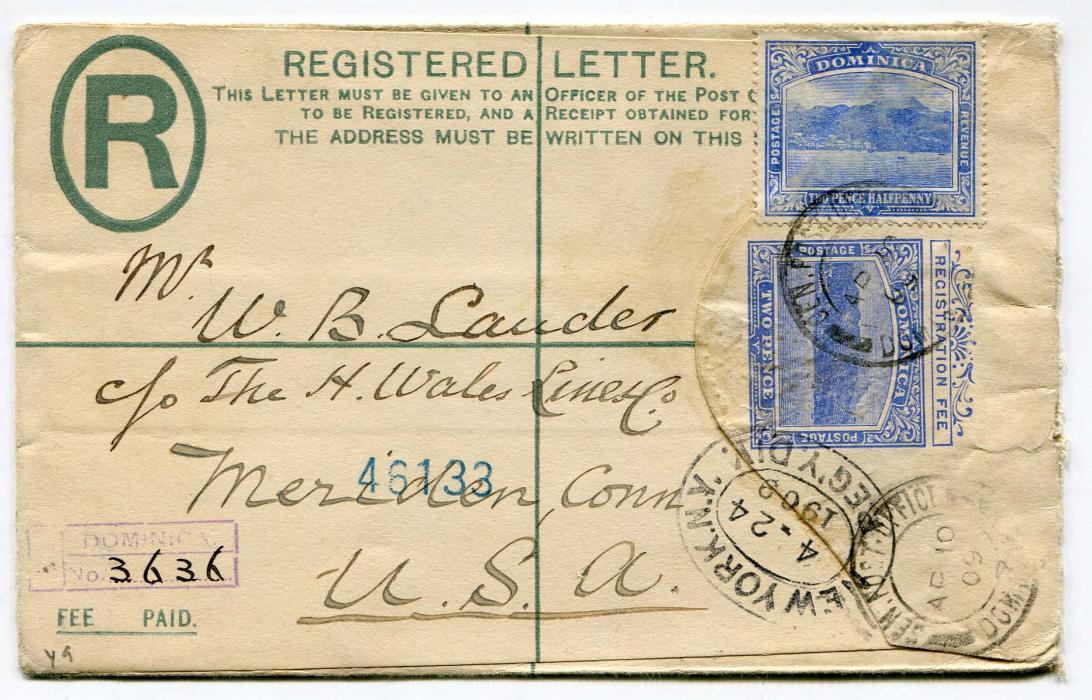 R
REGISTERED LETTER.
THIS LETTER MUST BE GIVEN TO AN OFFICER OF THE POST
TO BE REGISTERED, AND A RECEIPT OBTAINED FOR
THE ADDRESS MUST BE WRITTEN ON THIS
DOMINICA
POSTAGE
REVENUE
TWO PENCE HALFPENNY
POSTAGE
DOMINICA
TWO PENCE
POSTAGE
REGISTRATION FEE
Mr
W. B. Lauder
c/o The H. Wales Lines Co
Meriden, Conn
46133
U. S. A.
DOMINICA.
No. 3636
FEE PAID.
NEW YORK, N.Y. REG'Y. DIV.
4-24
1909
GEN. POST OFFICE
AP 10
09
DOM